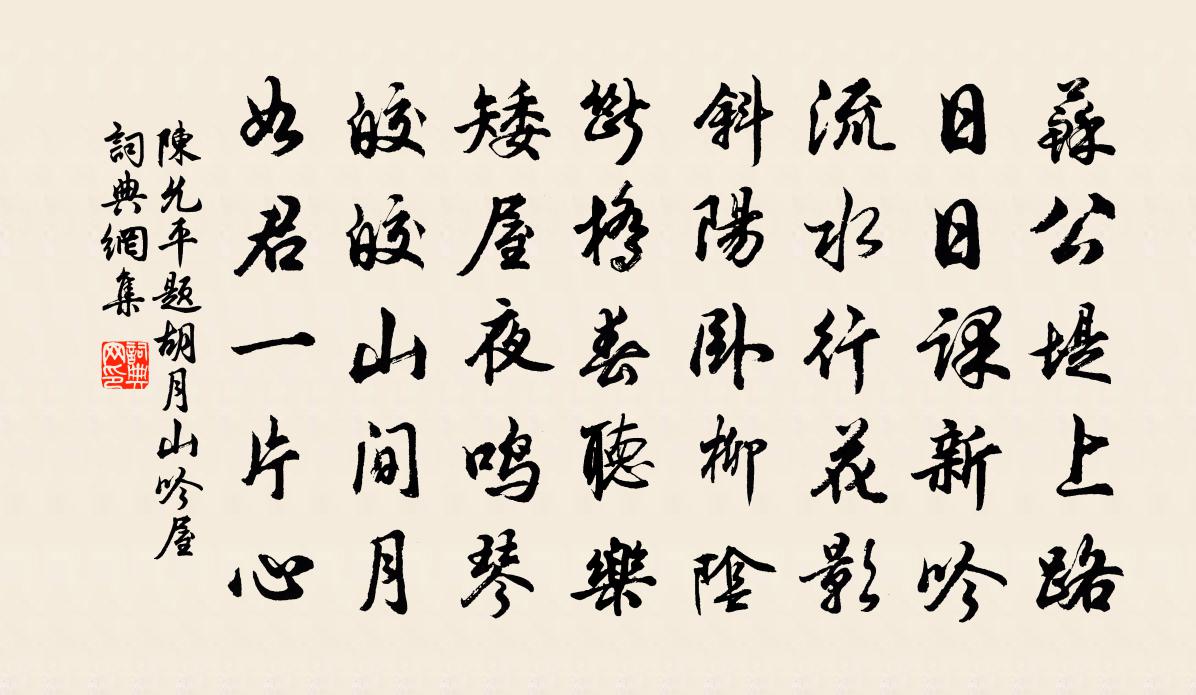 蘇公堤上路
日日課新吟
流水行花影
斜陽臥柳陰
斷橋春聽樂
矮屋夜鳴琴
皎皎山間月
如君一片心
陳允平題胡月山吟屋
詞典網集
詞典网印